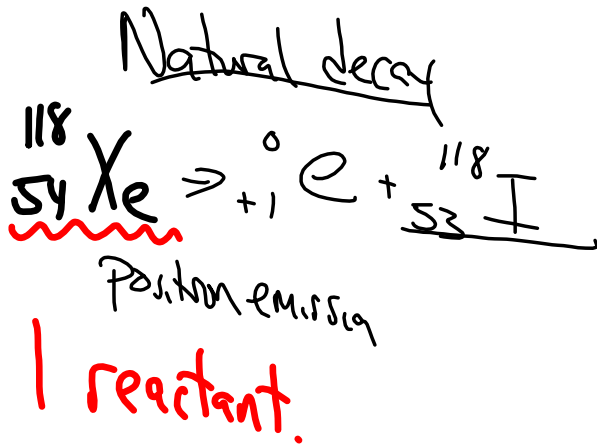 Natural decay
¹¹⁸₅₄Xe => ⁰₊₁e + ¹¹⁸₅₃I
Positron emission
1 reactant.